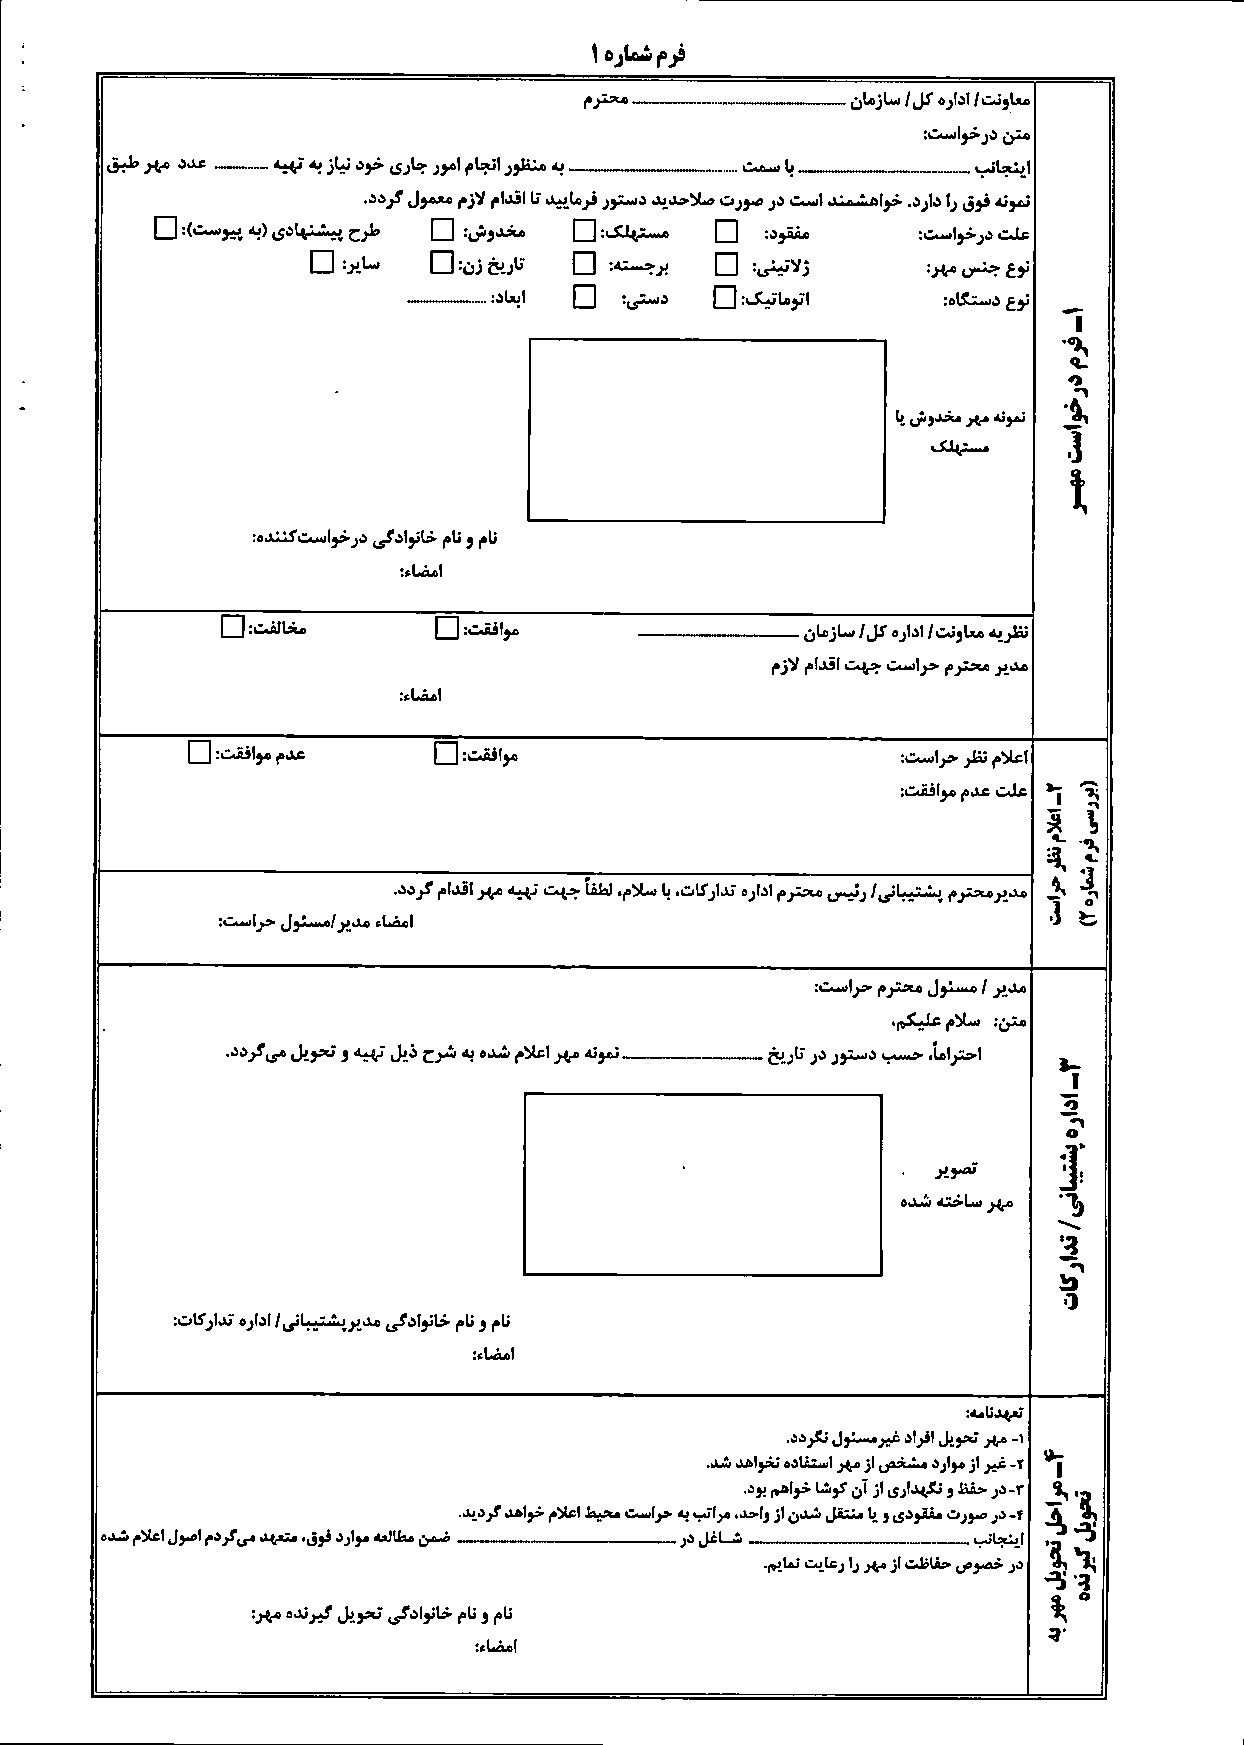 فرم شماره ۱
معاونت/ اداره کل/ سازمان ـــــــــــــ محترم
متن درخواست:
اینجانب ـــــــــــــ با سمت ـــــــــــــ به منظور انجام امور جاری خود نیاز به تهیه ـــــــ عدد مهر طبق
نمونه فوق را دارد. خواهشمند است در صورت صلاحدید دستور فرمایید تا اقدام لازم معمول گردد.
علت درخواست: مفقود: □ مستهلک: □ مخدوش: □ طرح پیشنهادی (به پیوست): □
نوع جنس مهر: ژلاتینی: □ برجسته: □ تاریخ زن: □ سایر: □
نوع دستگاه: اتوماتیک: □ دستی: □ ابعاد: ـــــــ
نمونه مهر مخدوش یا
مستهلک
نام و نام خانوادگی درخواست‌کننده:
امضاء:
۱ـ فرم درخواست مهر
نظریه معاونت/ اداره کل/ سازمان ـــــــــــــ موافقت: □ مخالفت: □
مدیر محترم حراست جهت اقدام لازم
امضاء:
اعلام نظر حراست: موافقت: □ عدم موافقت: □
علت عدم موافقت:
مدیرمحترم پشتیبانی/ رئیس محترم اداره تدارکات، با سلام، لطفاً جهت تهیه مهر اقدام گردد.
امضاء مدیر/مسئول حراست:
۲ـ اعلام نظر حراست
(بررسی فرم شماره ۲)
مدیر / مسئول محترم حراست:
متن: سلام علیکم،
احتراماً، حسب دستور در تاریخ ـــــــــــــ نمونه مهر اعلام شده به شرح ذیل تهیه و تحویل می‌گردد.
تصویر
مهر ساخته شده
نام و نام خانوادگی مدیرپشتیبانی/ اداره تدارکات:
امضاء:
۳ـ اداره پشتیبانی/ تدارکات
تعهدنامه:
۱- مهر تحویل افراد غیرمسئول نگردد.
۲- غیر از موارد مشخص از مهر استفاده نخواهد شد.
۳-در حفظ و نگهداری از آن کوشا خواهم بود.
۴- در صورت مفقودی و یا منتقل شدن از واحد، مراتب به حراست محیط اعلام خواهد گردید.
اینجانب ـــــــــــــ شاغل در ـــــــــــــ ضمن مطالعه موارد فوق، متعهد می‌گردم اصول اعلام شده
در خصوص حفاظت از مهر را رعایت نمایم.
نام و نام خانوادگی تحویل گیرنده مهر:
امضاء:
۴ـ مراحل تحویل مهر به
تحویل گیرنده